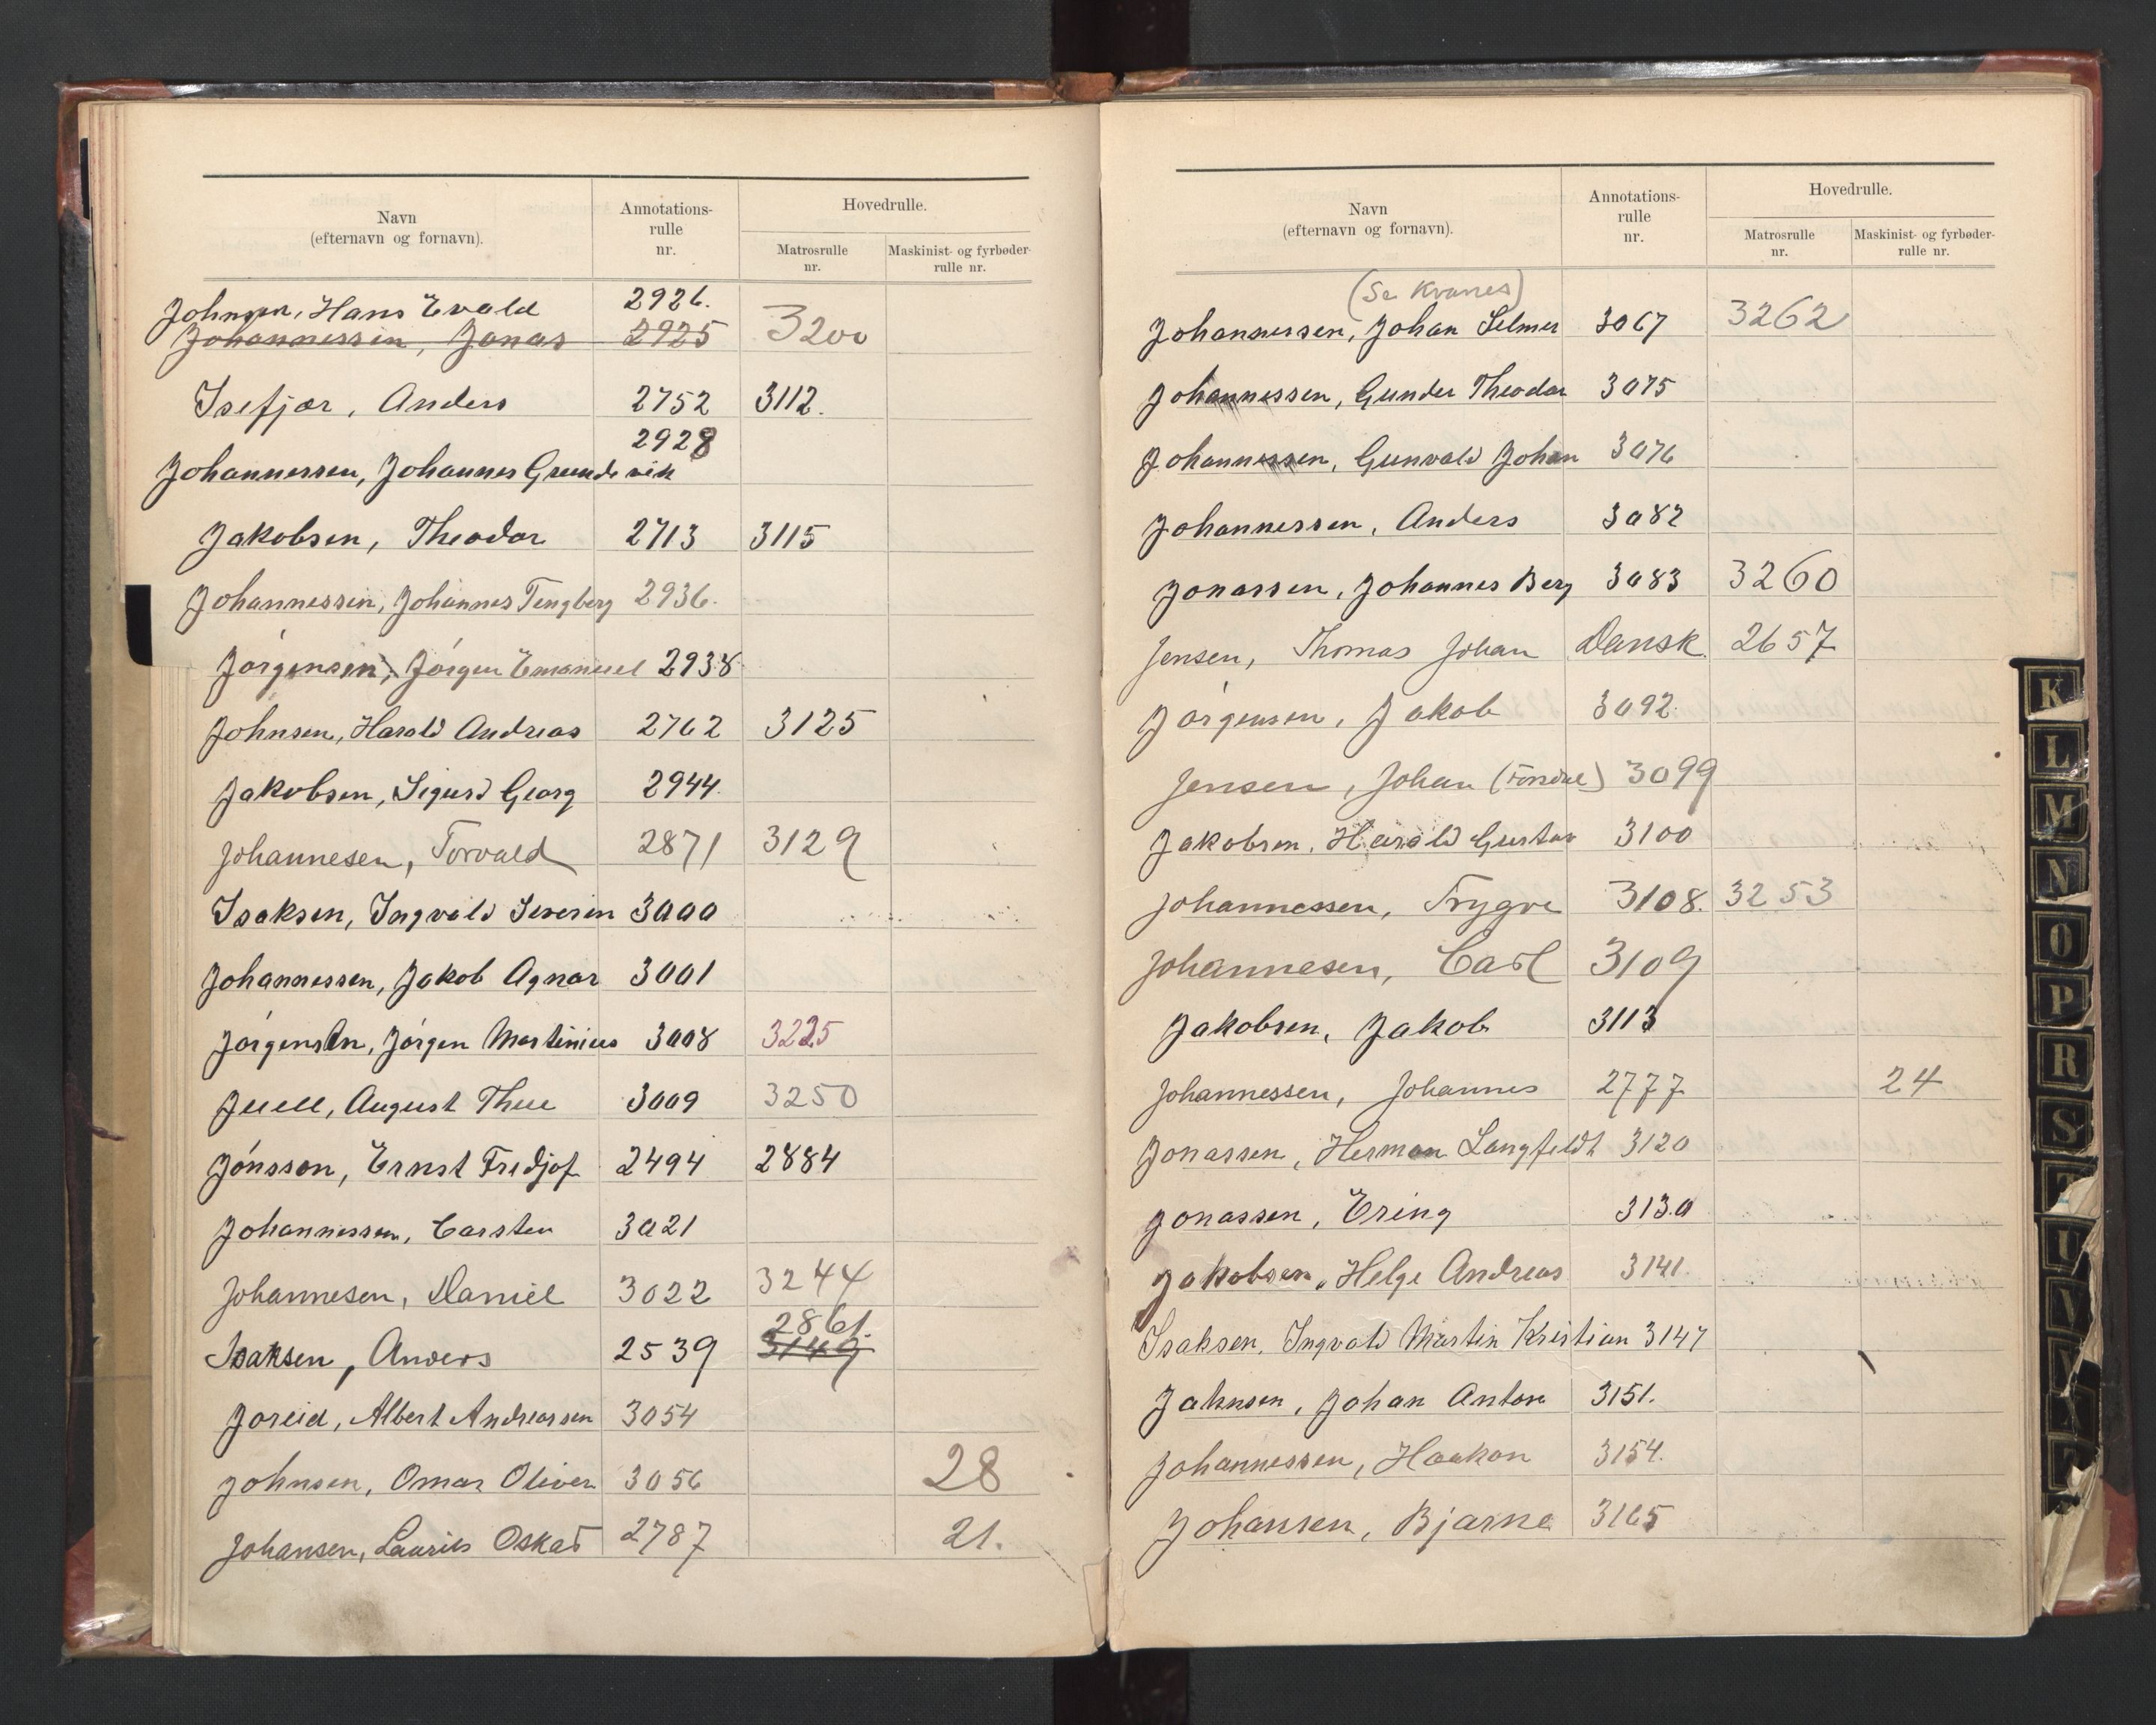 Navn
(efternavn og fornavn).
Annotations-
rulle
nr.
Hovedrulle.
Matrosrulle
nr.
Maskinist- og fyrbøder-
rulle nr.
Johnsen, Hans Evald 2926.
Johannessen, Jonas 2925 3200
Isefjær, Anders 2752 3112.
2928
Johannessen, Johannes Grundvik
Jakobsen, Theodor 2713 3115
Johannessen, Johannes Tengberg 2936.
Jørgensen, Jørgen Emanuel 2938
Johnsen, Harald Andreas 2762 3125
Jakobsen, Sigurd Georg 2944.
Johannesen, Torvald 2871 3129
Isaksen, Ingvald Severin 3000
Johannessen, Jakob Agnar 3001
Jørgensen, Jørgen Martinius 3008 3225
Juell, August Thue 3009 3250
Jónsson, Ernst Fredjof 2494 2884
Johannessen, Carsten 3021
Johannesen, Daniel 3022 3244
2861.
Isaksen, Anders 2539 3149
Joreid, Albert Andreassen 3054
Johnsen, Omar Oliver 3056 28
Johansen, Laurits Oskar 2787 21.
Navn
(efternavn og fornavn).
Annotations-
rulle
nr.
Hovedrulle.
Matrosrulle
nr.
Maskinist- og fyrbøder-
rulle nr.
(Se Kvanes)
Johannessen, Johan Selmer 3067 3262
Johannessen, Gunder Theodor 3075
Johannessen, Gunvald Johan 3076
Johannessen, Anders 3082
Jonassen, Johannes Berg 3083 3260
Jensen, Thomas Johan Dansk 2657
Jørgensen, Jakob 3092.
Jensen, Johan 3099
Jakobsen, Harald Gustav 3100
Johannessen, Trygve 3108. 3253
Johannesen, Carl 3109
Jakobsen, Jakob 3113
Johannessen, Johannes 2777 24
Jonassen, Herman Langfeldt 3120
Jonassen, Ering 3130
Jakobsen, Helge Andreas 3141.
Isaksen, Ingvald Martin Kristian 3147
Jahnsen, Johan Anton 3151.
Johannessen, Haakon 3154.
Johansen, Bjarne 3165
K
L
M
N
O
P
R
S
T
U
V